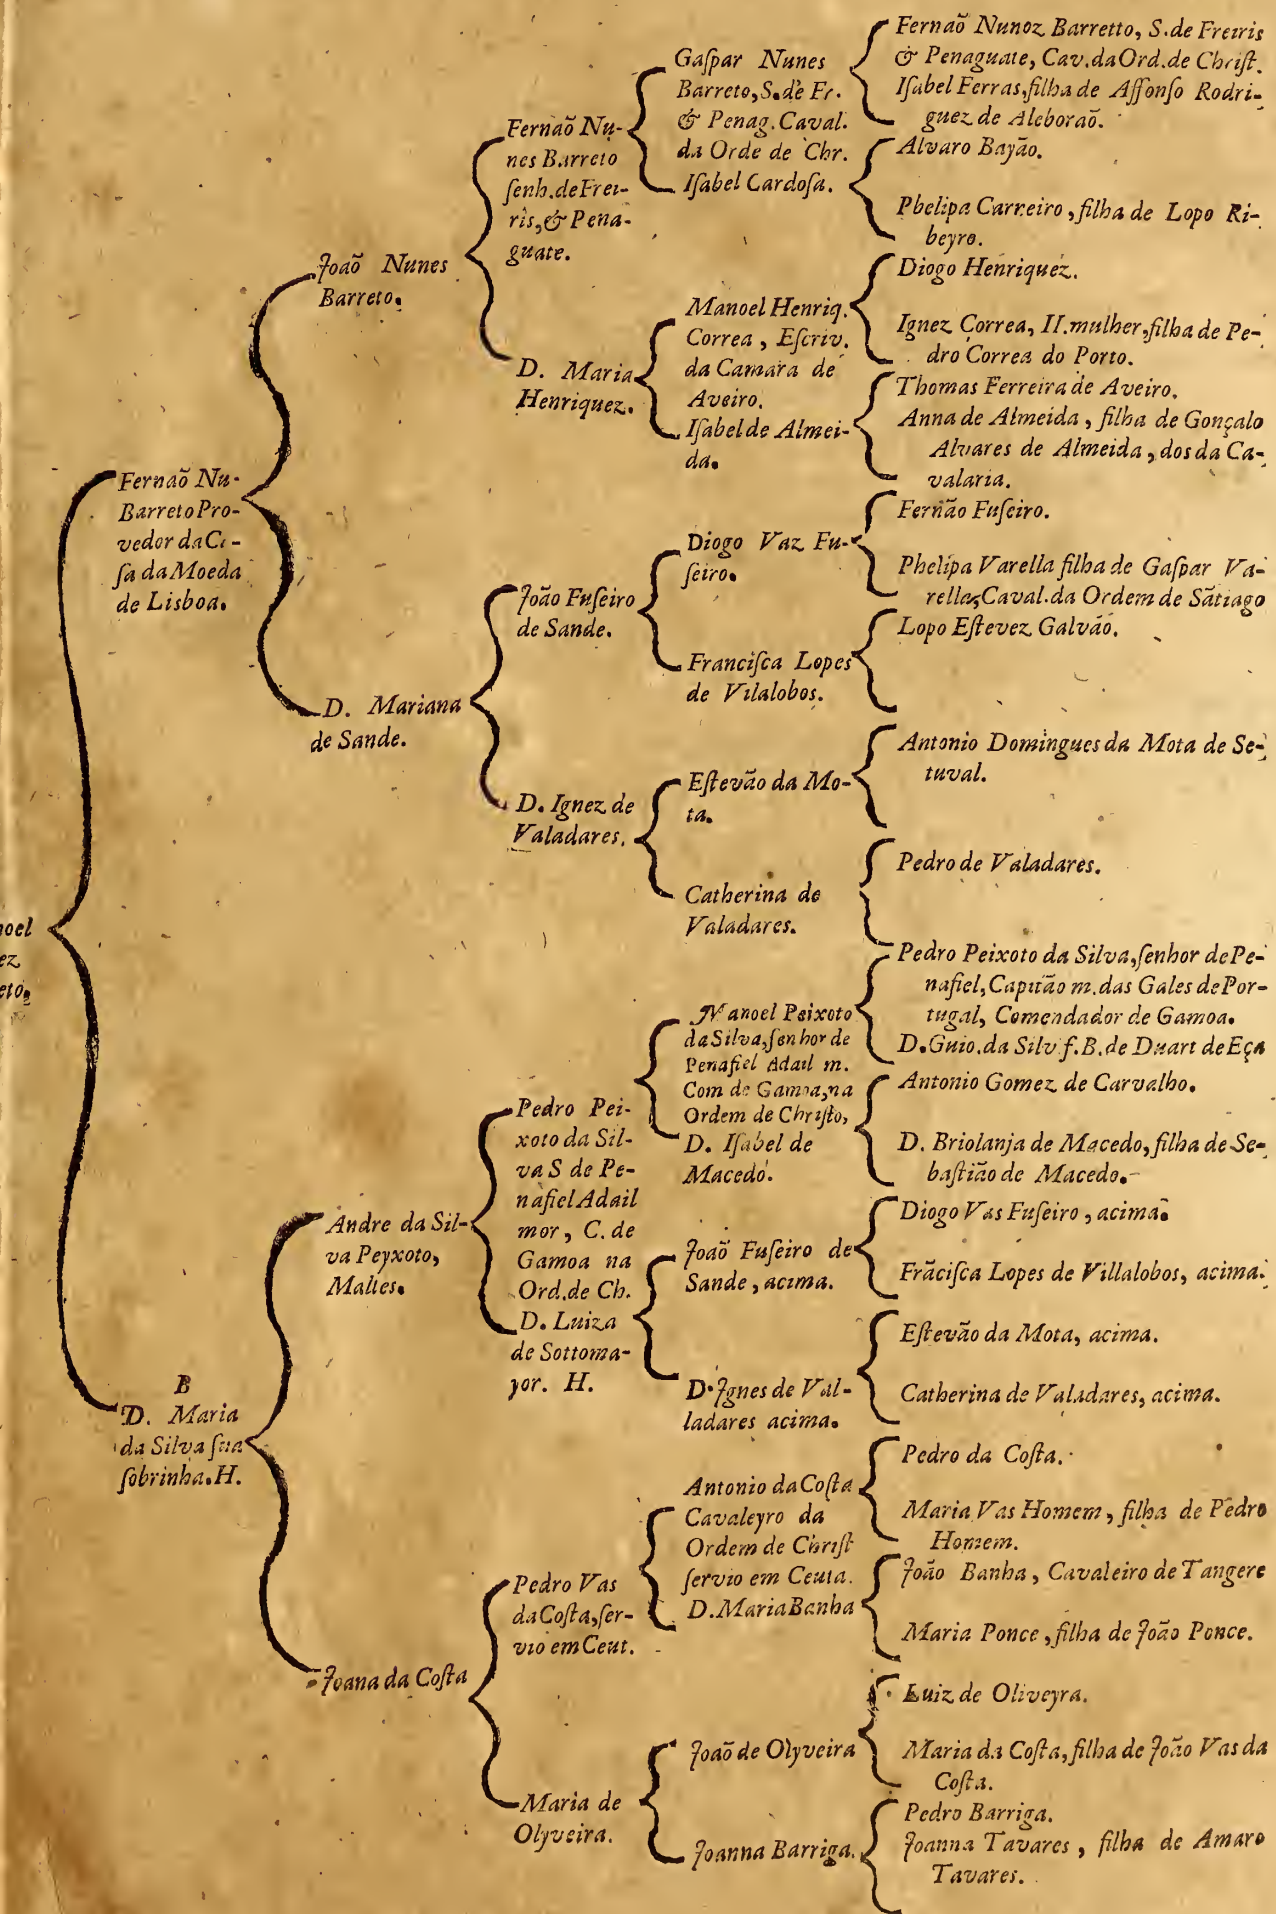 noel
ez
eto.
Fernaõ Nu-
Barreto Pro-
vedor da Ca-
ſa da Moeda
de Lisboa.
B
D. Maria
da Silva ſua
ſobrinha. H.
Joaõ Nunes
Barreto.
D. Mariana
de Sande.
Andre da Sil-
va Peyxoto,
Maltes.
Joana da Coſta
Fernaõ Nu-
nes Barreto
ſenh. de Frei-
ris, & Pena-
guate.
D. Maria
Henriquez.
João Fuſeiro
de Sande.
D. Ignez de
Valadares.
Pedro Pei-
xoto da Sil-
va S de Pe-
nafiel Adail
mor, C. de
Gamoa na
Ord. de Ch.
D. Luiza
de Sottoma-
yor. H.
Pedro Vas
da Coſta, ſer-
vio em Ceut.
Maria de
Olyveira.
Gaſpar Nunes
Barreto, S. de Fr.
& Penag. Caval.
da Orde de Chr.
Iſabel Cardoſa.
Manoel Henriq.
Correa, Eſcriv.
da Camara de
Aveiro.
Iſabel de Almei-
da.
Diogo Vaz Fu-
ſeiro.
Franciſca Lopes
de Vilalobos.
Eſtevão da Mo-
ta.
Catherina de
Valadares.
Manoel Peixoto
da Silva, ſenhor de
Penafiel Adail m.
Com de Gamoa, na
Ordem de Chriſto,
D. Iſabel de
Macedo.
Joaõ Fuſeiro de
Sande, acima.
D. Ignes de Val-
ladares acima.
Antonio da Coſta
Cavaleyro da
Ordem de Chriſt
ſervio em Ceuta.
D. Maria Banha
Joaõ de Olyveira
Joanna Barriga.
Fernaõ Nunoz Barretto, S. de Freiris
& Penaguate, Cav. da Ord. de Chriſt.
Iſabel Ferras, filha de Affonſo Rodri-
guez de Aleboraõ.
Alvaro Bayão.
Phelipa Carneiro, filha de Lopo Ri-
beyro.
Diogo Henriquez.
Ignez Correa, II. mulher, filha de Pe-
dro Correa do Porto.
Thomas Ferreira de Aveiro.
Anna de Almeida, filha de Gonçalo
Alvares de Almeida, dos da Ca-
valaria.
Fernão Fuſeiro.
Phelipa Varella filha de Gaſpar Va-
rella, Caval. da Ordem de Sãtiago
Lopo Eſtevez Galvão.
Antonio Domingues da Mota de Se-
tuval.
Pedro de Valadares.
Pedro Peixoto da Silva, ſenhor de Pe-
nafiel, Capitão m. das Gales de Por-
tugal, Comendador de Gamoa.
D. Guio. da Silv f. B. de Duart de Eça
Antonio Gomez de Carvalho.
D. Briolanja de Macedo, filha de Se-
baſtião de Macedo.
Diogo Vas Fuſeiro, acima.
Frãciſca Lopes de Villalobos, acima.
Eſtevão da Mota, acima.
Catherina de Valadares, acima.
Pedro da Coſta.
Maria Vas Homem, filha de Pedro
Homem.
João Banha, Cavaleiro de Tangere
Maria Ponce, filha de João Ponce.
Luiz de Oliveyra.
Maria da Coſta, filha de João Vas da
Coſta.
Pedro Barriga.
Joanna Tavares, filha de Amaro
Tavares.